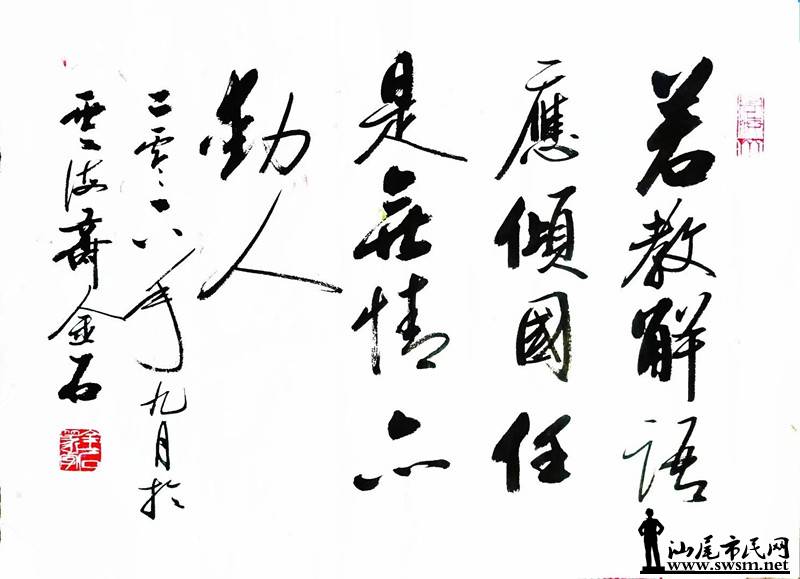 若教解语
應傾國任
是無情亦
動人
二零一六年九月於
雲海齋金石
汕尾市民网
www.swsm.net